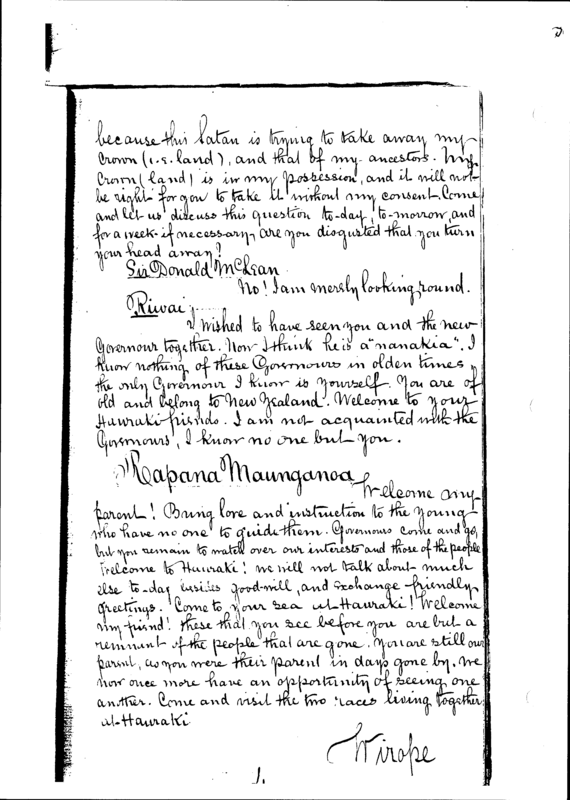 because this Satan is trying to take away my
Crown (i.e. land), and that of my ancestors. My
Crown (land) is in my possession, and it will not
be right for you to take it without my consent. Come
and let us discuss this question to-day, to-morrow, and
for a week if necessary, are you disgusted that you turn
your head away?
Sir Donald McLean
No! I am merely looking round.
Riwai
I wished to have seen you and the new
Governour together. Now I think he is a "nanakia". I
know nothing of these Governours in olden times,
the only Governour I know is yourself. You are of
old and belong to New Zealand. Welcome to your
Hauraki friends. I am not acquainted with the
Governours, I know no one but you.
Rapana Maunganoa
Welcome my
parent! Bring love and instruction to the young
who have no one to guide them. Governours come and go,
but you remain to watch over our interests and those of the people
Welcome to Hauraki! we will not talk about much
else to-day besides good-will, and exchange friendly
greetings. Come to your sea at Hauraki! Welcome
my friend! these that you see before you are but a
remnant of the people that are gone. You are still our
parent, as you were their parent in days gone by. We
now once more have an opportunity of seeing one
another. Come and visit the two races living together
at Hauraki
Wirope
1.